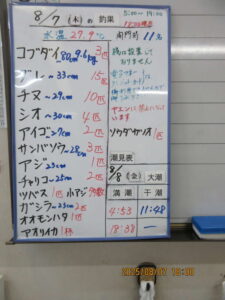 8/7(木)の釣果
5:00〜19:00
水温 27.9℃
開門前 11名
コブダイ 〜80cm 9.6kg 3匹
グレ 〜33cm 15匹
チヌ 〜29cm 10匹
シオ 〜30cm 4匹
アイゴ 〜27cm 2匹
サンバソウ 〜28cm 3匹
アジ 〜23cm 1匹
チャリコ 〜25cm 2匹
ツバス 1匹 小アジ 多数
ガシラ 〜23cm 2匹
オオモンハタ 1匹
アオリイカ 1杯
ソウダガツオ 1匹
潮見表
8/8(金) 大潮
満潮 干潮
4:53 11:48
18:38 ー
2025/08/07 19:00